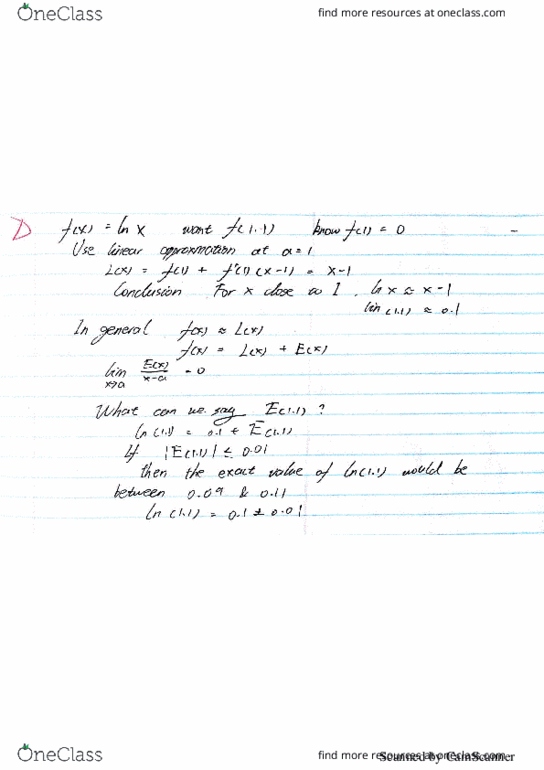 OneClass find more resources at oneclass.com
D f(x) = ln x want f(1.1) know f(1) = 0
Use linear approxmation at a=1
L(x) = f(1) + f'(1)(x-1) = x-1
Conclusion For x close to 1, ln x ≈ x-1
(1.1) ≈ 0.1
In general f(x) ≈ L(x)
f(x) = L(x) + E(x)
lim x→a E(x)/x-a = 0
What can we say E(1.1) ?
ln(1.1) = 0.1 + E(1.1)
If |E(1.1)| ≤ 0.01
then the exact value of ln(1.1) would be
between 0.09 & 0.11
ln(1.1) = 0.1 ± 0.01
OneClass find more resources at oneclass.com
Scanned by CamScanner